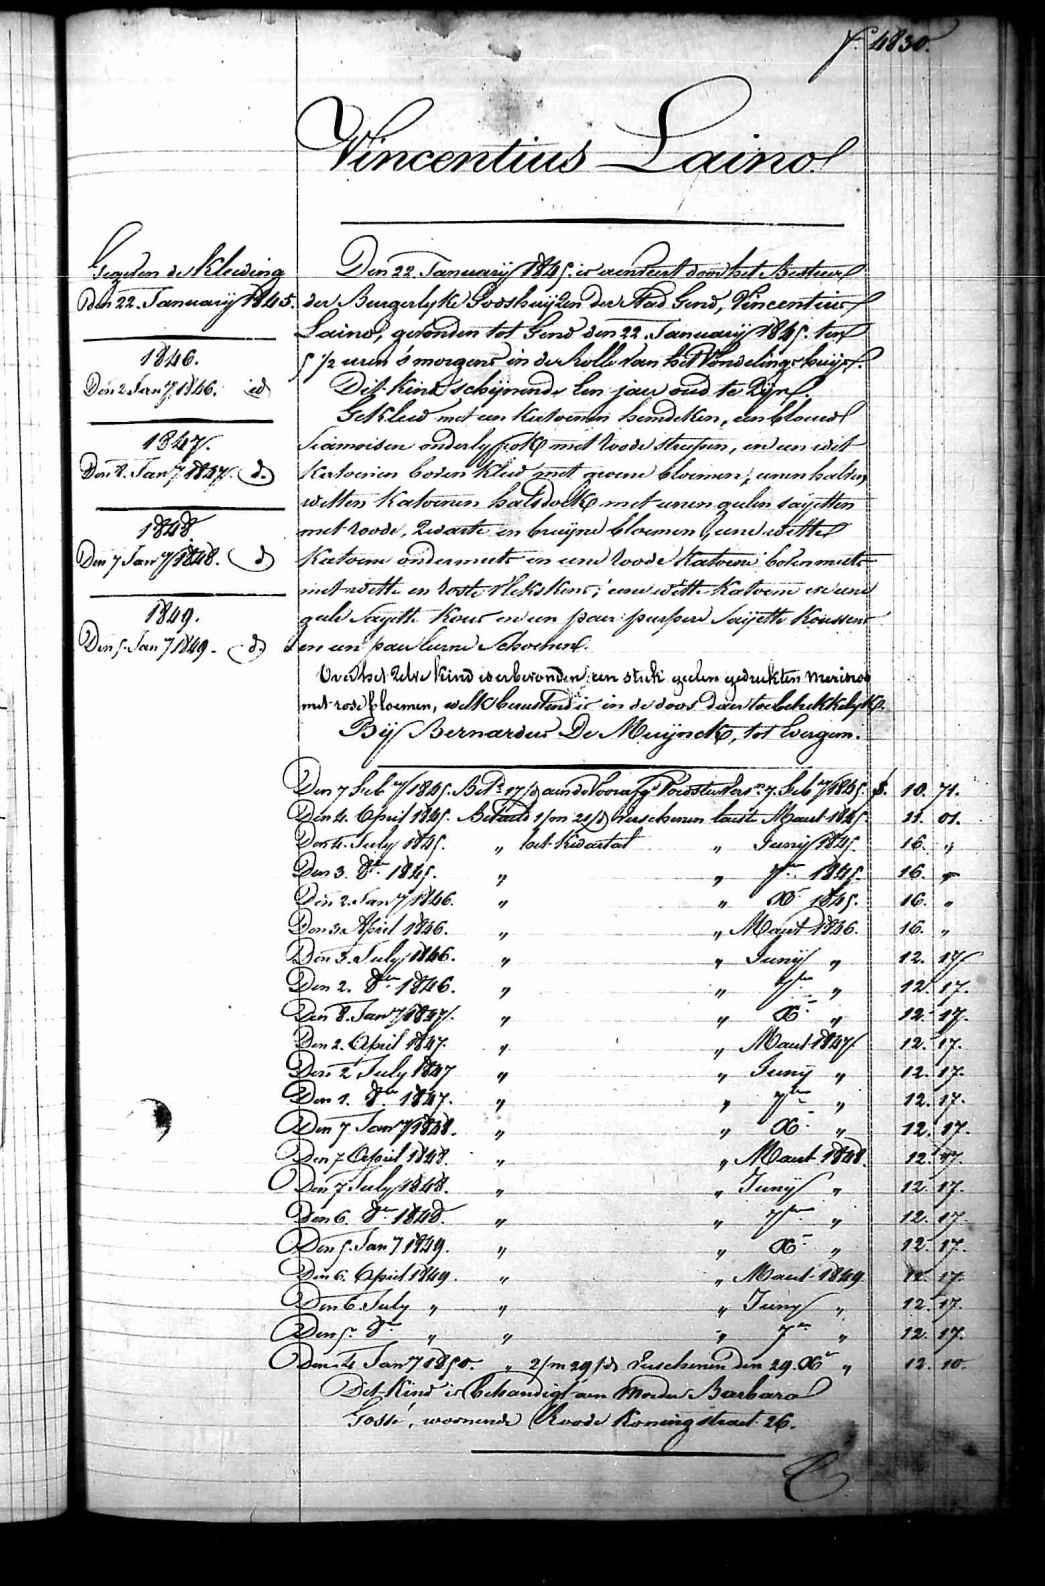 f. 4830.
Vincentius Laino
Gegeven de Kleeding
Den 22. January 1845.
1846.
Den 2 Jan.y 1846. id
1847.
Den 8. Jan.y 1847. d.
1848
Den 7 Jan.y 1848. d
1849.
Den 5. Jan.y 1849. d.
Den 22. January 1845. is aenveert door het Bestuur
der Burgerlyke Godshuyzen der Stad Gend, Vincentius
Laino, gevonden tot Gend den 22. January 1845. ten
5 1/2 uren s'morgens in de Rolle van het Vondelingshuys.
Dit Kind schynende Een jaer oud te Zyn.
Gekleed met een Katoenen hemdeken, een blauw
Siamoisen onderlyfrok met roode streepen, en een wit
Katoenen boven Kleed met groene bloemen, eenen halven
witten Katoenen halsdoek met eenen geelen sayetten
met roode, Zwarte en bruyne bloemen, eene witte
Katoene ondermuts en eene roode Katoene bovenmuts
met witte en roste vlekskens; eene witte Katoene en eene
geele Sayette Kous en een paer purpere Sayette Koussens
en een paer leerne Schoenen.
Over het Zelve Kind is er bevonden een stuk geelen gedrukten merinos
met rose bloemen, welk berustend is in de doos daer toe betrekkelyk.
By Bernardus De Muijnck, tot Evergem.
Den 7 Feb.y 1845. Bet.d 17/d aen de Voorafg.e Voedster Vers.n 7. Feb.y 1845. f. 10. 71.
Den 4. April 1845. Betaeld 1/m 21/d Verschenen laest Maert 1845. 11. 01.
Den 4. July 1845. „ het Kwartael „ Juny 1845. 16. „
Den 3. 8.br 1845. „ „ 7.br 1845. 16. „
Den 2. Jan.y 1846. „ „ X.r 1845. 16. „
Den 3. April 1846. „ „ Maert 1846. 16. „
Den 3. July 1846. „ „ Juny „ 12. 17
Den 2. 8.br 1846. „ „ 7.br „ 12. 17.
Den 8. Jan.y 1847. „ „ X.r „ 12. 17.
Den 2. April 1847. „ „ Maert 1847 12. 17.
Den 2 July 1847 „ „ Juny „ 12. 17.
Den 1. 8.br 1847. „ „ 7.br „ 12. 17.
Den 7 Jan.y 1848. „ „ X.r „ 12. 17.
Den 7 April 1848. „ „ Maert 1848. 12. 17.
Den 7. July 1848. „ „ Juny „ 12. 17.
Den 6. 8.br 1848. „ „ 7.br „ 12. 17.
Den 5. Jan.y 1849. „ „ X.r „ 12. 17.
Den 6. April 1849. „ „ Maert 1849 12. 17.
Den 6. July „ „ „ Juny „ 12. 17.
Den 5. 8.br „ „ „ 7.br „ 12. 17.
Den 4. Jan.y 1850. „ 2/m 29/d Verschenen den 29. X.r „ 12. 10.
Dit Kind is behandigt aen Moeder Barbara
Gossé, woonende Roode Koningstraet 26.